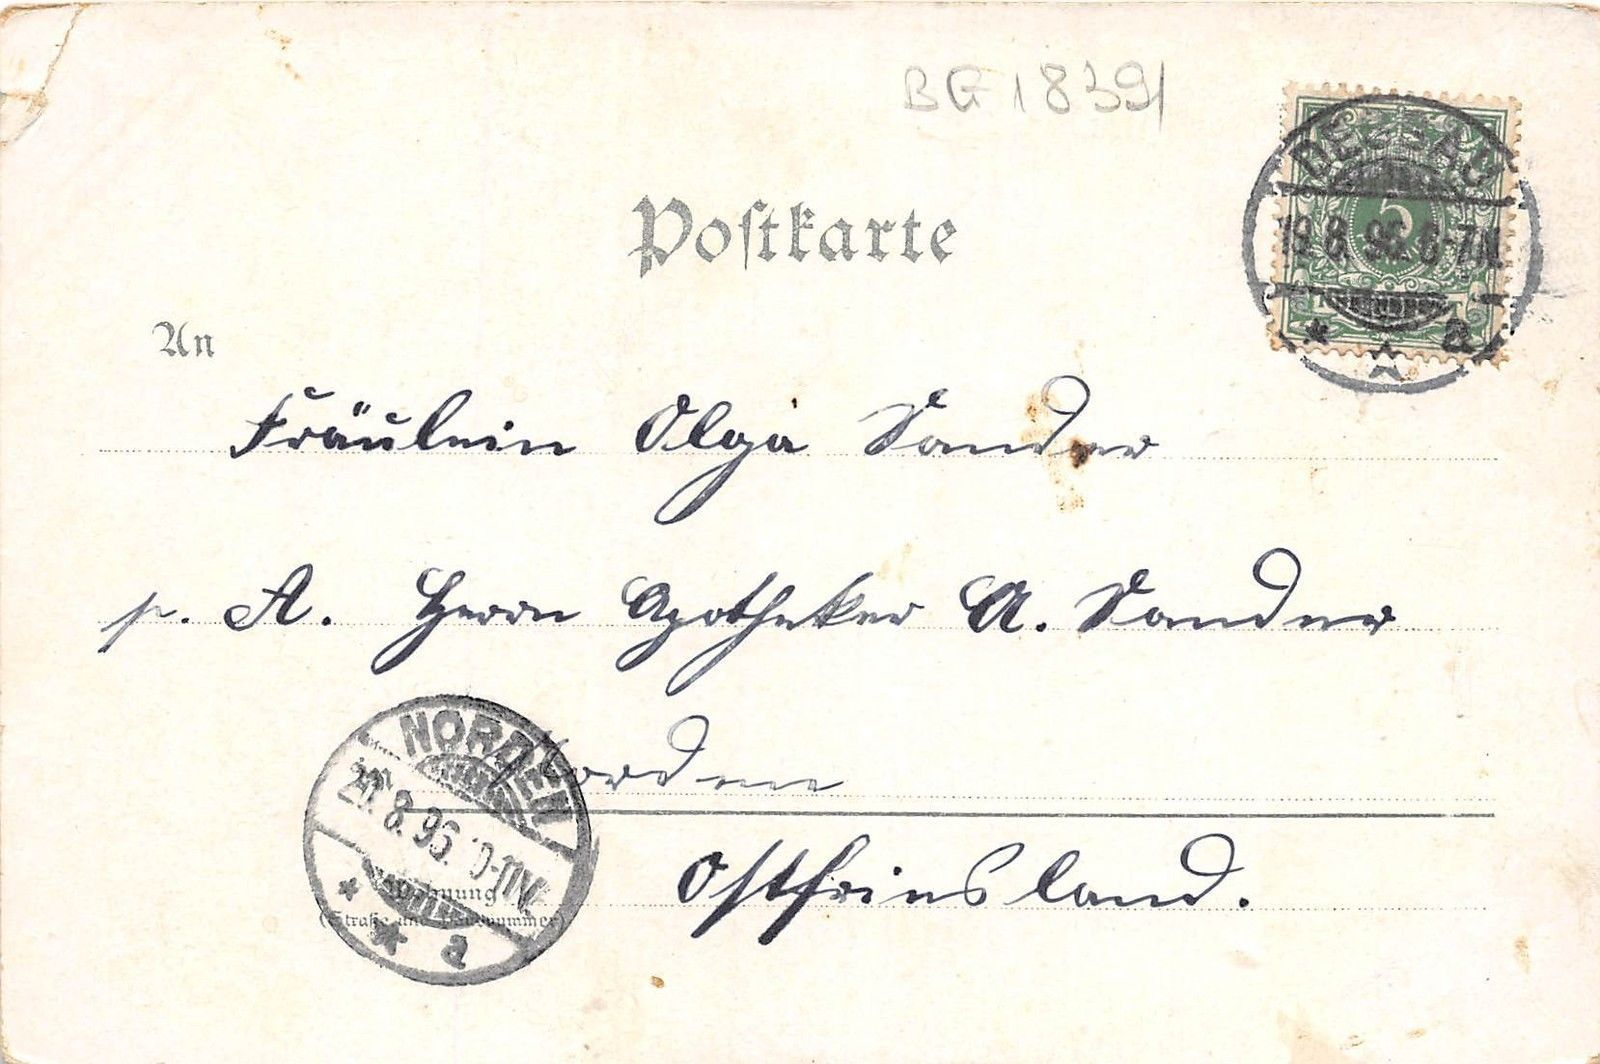 BG 18391
DESSAU
5
19.8.96.6-7N.
* a
Postkarte
An
Fräulein Olga Sander
p. A. Herrn Apotheker A. Sander
Norden
NORDEN
20.8.96.10-11V.
* a
Ostfriesland.
Wohnung
(Straße und Hausnummer)